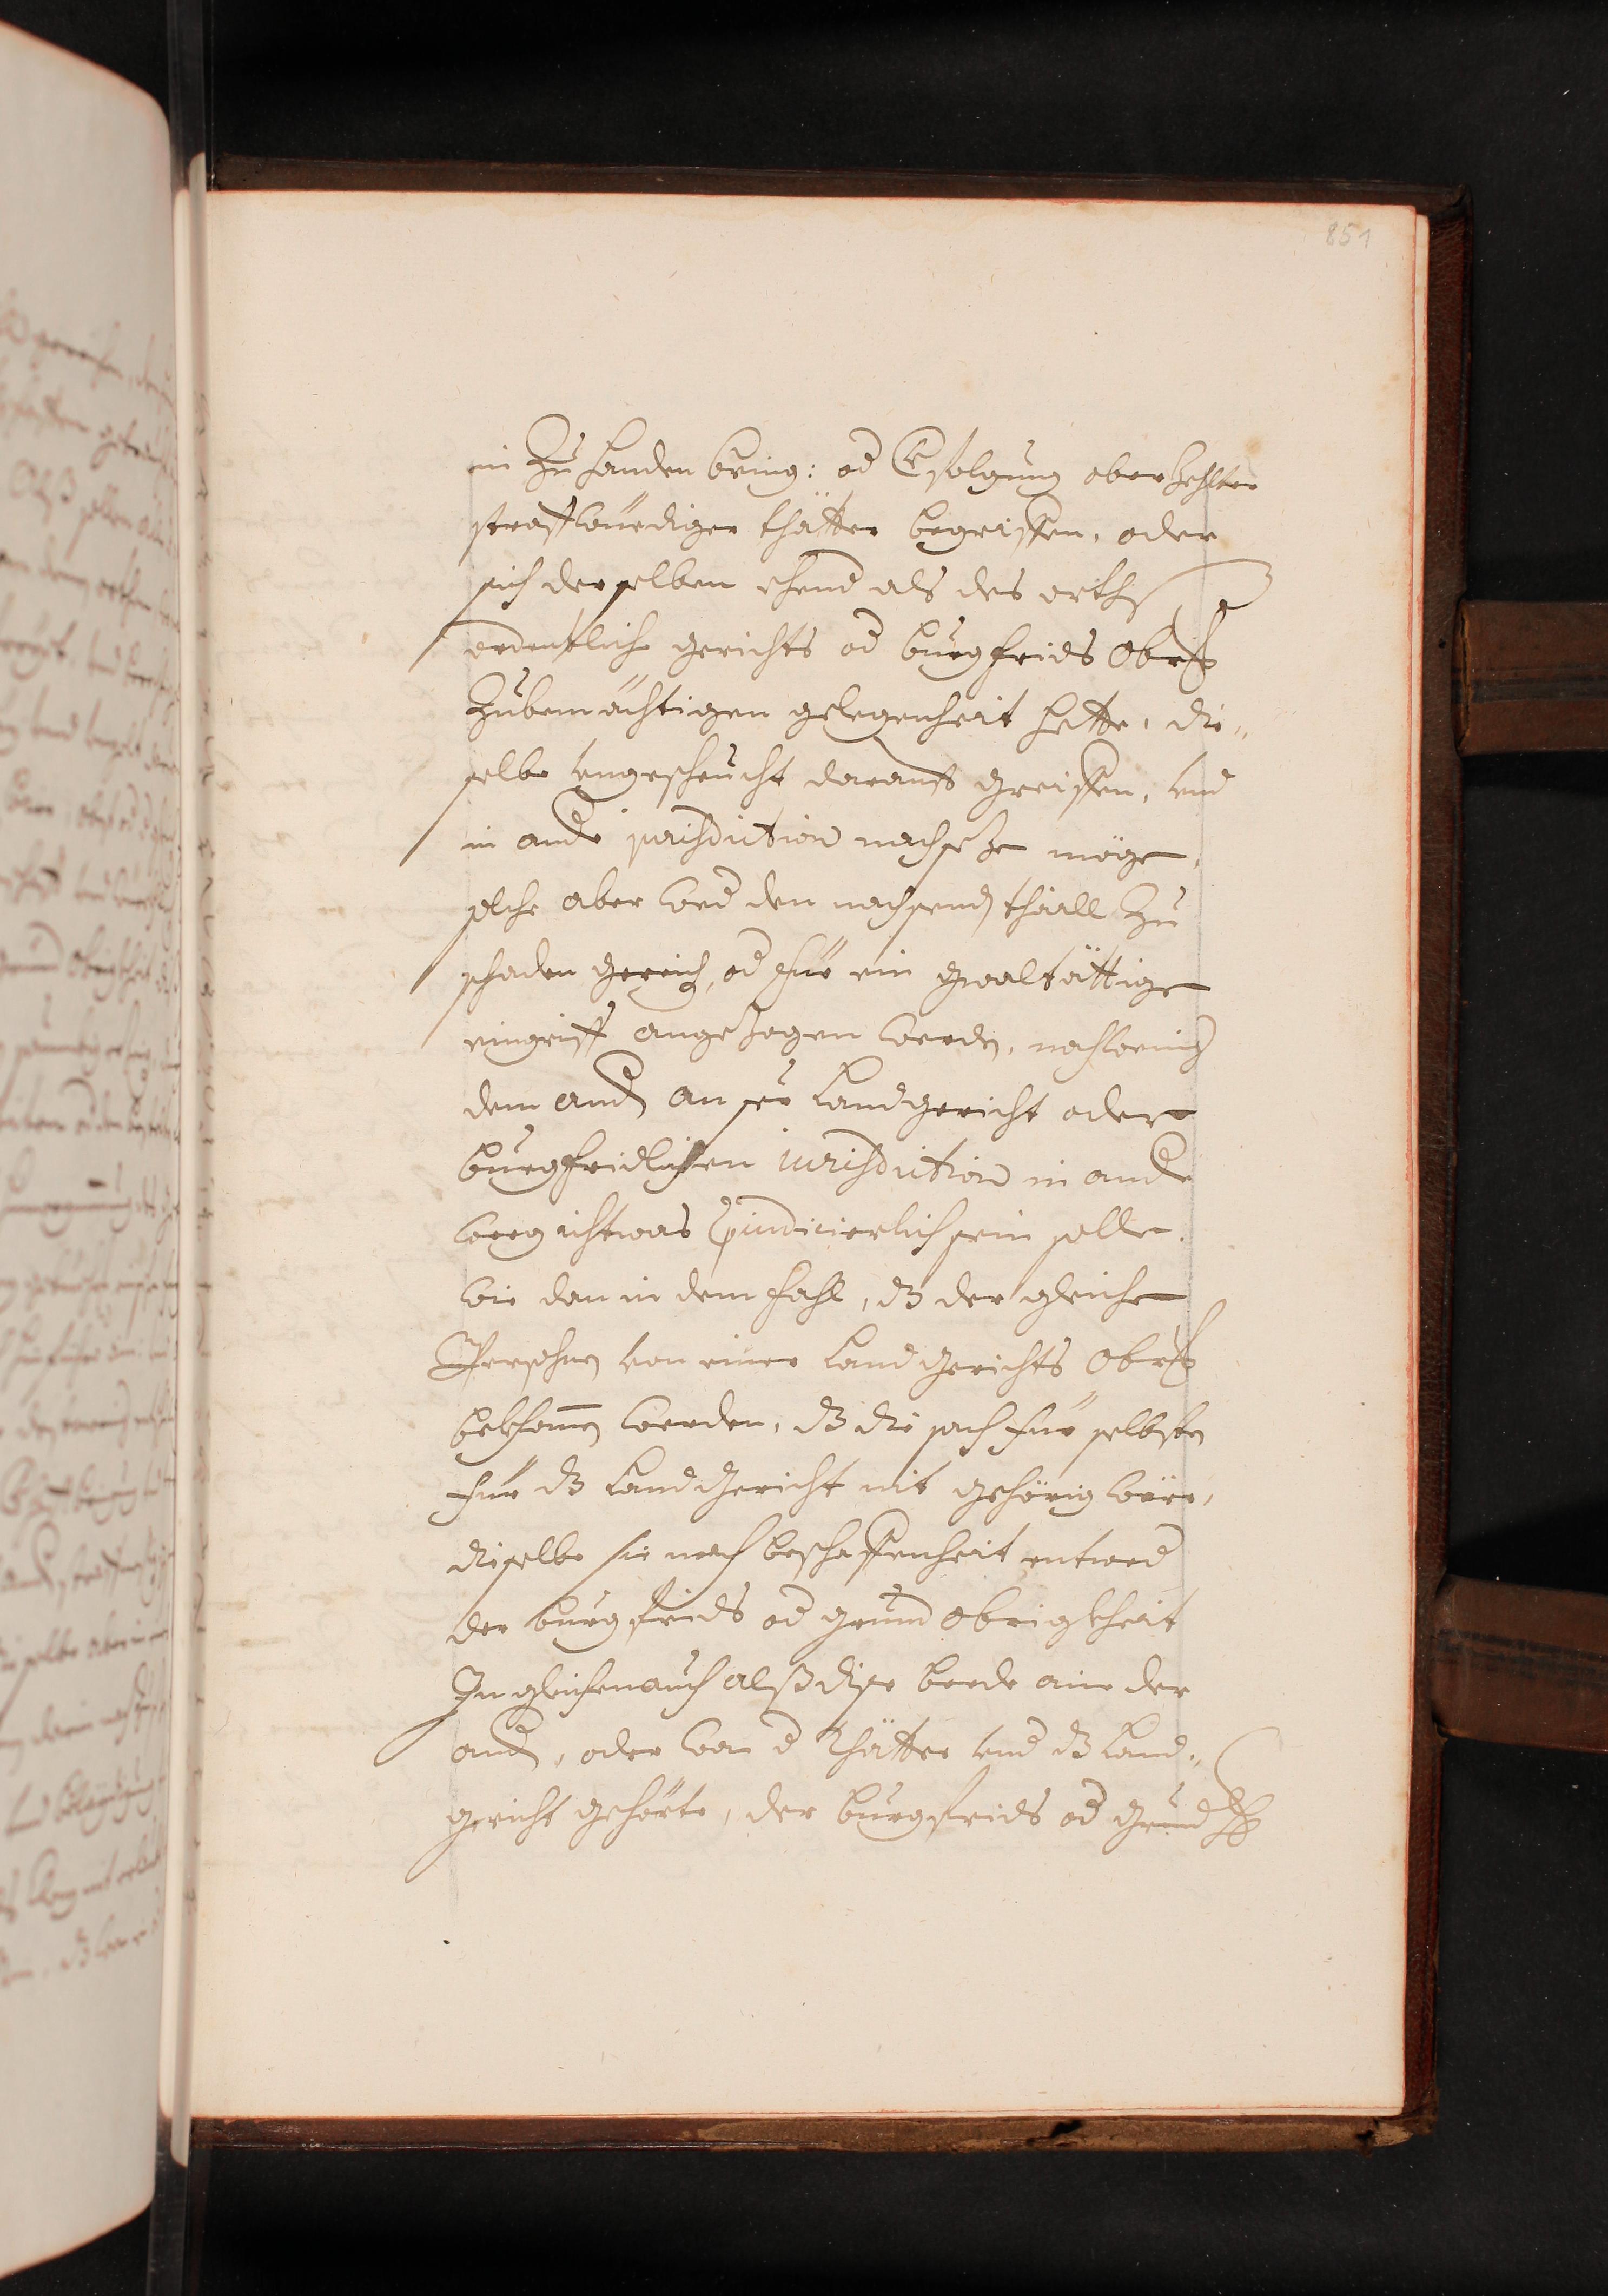 851
in Zu handen bring: od Erfolgung oberzehlter
straffwürdiger thätter begriffen, oder
sich derselben ehend als des orths
ordentliche gerichts od burgfrids Obrk
Zubemächtigen gelegenheit hette, die„
selbe ungescheucht darauff greiffen, und
in and jurisdiction nachseze möge,
solche aber wed den nachsend thaill Zu
schaden gereich, od für ein gwaltättige
eingriff angezogen werdn, nochwenig
dem andn an sr Landgericht oder
burgfridlichen iurisdiction in and
weeg ichtwas praeiudicierlich sein solle.
wie dan in dem fahl, dz der gleiche
Persohn von einer Landgerichts Obrk
bekhomen werden, dz die sach für selbsten
für dz Landgericht nit gehörig wäre,
dieselbe sie nach beschaffenheit entwed
der burgfrids od grund obrigkheit
In gleichen auch alß dise beede aine der
andn, oder wan d Thätter und dz Land„
gericht gehörte, der burgfrids od grund